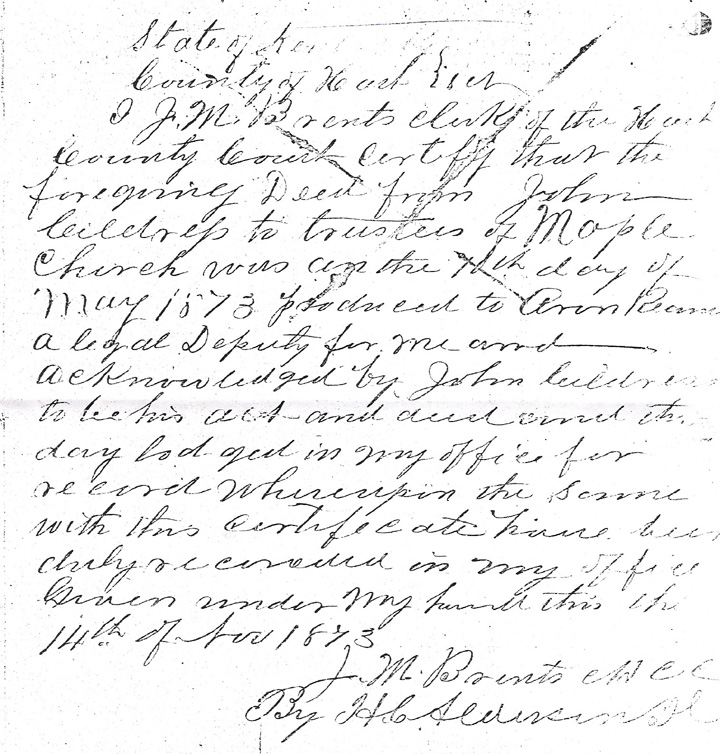 State of Ken
County of Hart Sct
I J. M. Brents clerk of the Hart
County Court Certify that the
foregoing Deed from John
Cildress to trustees of Maple
Church was on the 10th day of
May 1873 produced to Aron
a legal Deputy for me and
acknowledged by John Cildress
to be his act and deed and this
day lodged in my office for
record Whereupon the same
with this certificate have been
duly recorded in my office
Given under my hand this the
14th of Nov 1873
J. M. Brents
By H C